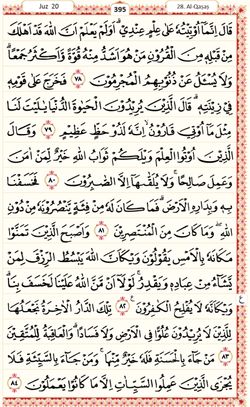 Juz 20
395
28. Al-Qaṣaṣ
قَالَ إِنَّمَآ أُوتِيتُهُۥ عَلَىٰ عِلْمٍ عِندِيٓ ۚ أَوَلَمْ يَعْلَمْ أَنَّ ٱللَّهَ قَدْ أَهْلَكَ
مِن قَبْلِهِۦ مِنَ ٱلْقُرُونِ مَنْ هُوَ أَشَدُّ مِنْهُ قُوَّةً وَأَكْثَرُ جَمْعًا ۚ
وَلَا يُسْـَٔلُ عَن ذُنُوبِهِمُ ٱلْمُجْرِمُونَ ٧٨ فَخَرَجَ عَلَىٰ قَوْمِهِۦ
فِي زِينَتِهِۦ ۖ قَالَ ٱلَّذِينَ يُرِيدُونَ ٱلْحَيَوٰةَ ٱلدُّنْيَا يَٰلَيْتَ لَنَا
مِثْلَ مَآ أُوتِيَ قَٰرُونُ إِنَّهُۥ لَذُو حَظٍّ عَظِيمٍ ٧٩ وَقَالَ
ٱلَّذِينَ أُوتُوا۟ ٱلْعِلْمَ وَيْلَكُمْ ثَوَابُ ٱللَّهِ خَيْرٌ لِّمَنْ ءَامَنَ
وَعَمِلَ صَٰلِحًا ۚ وَلَا يُلَقَّىٰهَآ إِلَّا ٱلصَّٰبِرُونَ ٨٠ فَخَسَفْنَا
بِهِۦ وَبِدَارِهِ ٱلْأَرْضَ ۖ فَمَا كَانَ لَهُۥ مِن فِئَةٍ يَنصُرُونَهُۥ مِن دُونِ
ٱللَّهِ ۖ وَمَا كَانَ مِنَ ٱلْمُنتَصِرِينَ ٨١ وَأَصْبَحَ ٱلَّذِينَ تَمَنَّوْا۟
مَكَانَهُۥ بِٱلْأَمْسِ يَقُولُونَ وَيْكَأَنَّ ٱللَّهَ يَبْسُطُ ٱلرِّزْقَ لِمَن
يَشَآءُ مِنْ عِبَادِهِۦ وَيَقْدِرُ ۖ لَوْلَآ أَن مَّنَّ ٱللَّهُ عَلَيْنَا لَخَسَفَ بِنَا ۖ
وَيْكَأَنَّهُۥ لَا يُفْلِحُ ٱلْكَٰفِرُونَ ٨٢ تِلْكَ ٱلدَّارُ ٱلْءَاخِرَةُ نَجْعَلُهَا
لِلَّذِينَ لَا يُرِيدُونَ عُلُوًّا فِي ٱلْأَرْضِ وَلَا فَسَادًا ۚ وَٱلْعَٰقِبَةُ لِلْمُتَّقِينَ
٨٣ مَن جَآءَ بِٱلْحَسَنَةِ فَلَهُۥ خَيْرٌ مِّنْهَا ۖ وَمَن جَآءَ بِٱلسَّيِّئَةِ فَلَا
يُجْزَى ٱلَّذِينَ عَمِلُوا۟ ٱلسَّيِّـَٔاتِ إِلَّا مَا كَانُوا۟ يَعْمَلُونَ ٨٤
ع